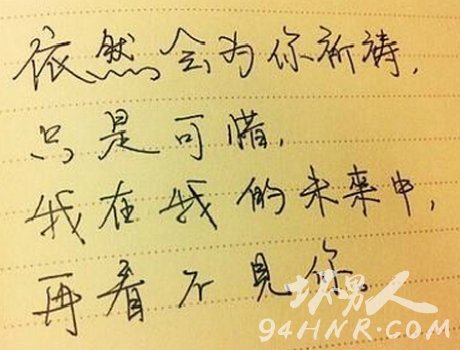 依然会为你祈祷,
只是可惜,
我在我的未来中,
再看不見你。
坏男人
94HNR.COM